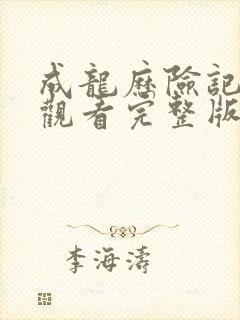 成龍歷險記
觀看完整版
李海濤